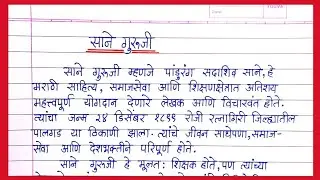 साने गुरूजी
साने गुरूजी म्हणजे पांडुरंग सदाशिव साने, हे
मराठी साहित्य, समाजसेवा आणि शिक्षणक्षेत्रात अतिशय
महत्त्वपूर्ण योगदान देणारे लेखक आणि विचारवंत होते.
त्यांचा जन्म २४ डिसेंबर १८९९ रोजी रत्नागिरी जिल्ह्यातील
पालगड या ठिकाणी झाला. त्यांचे जीवन साधेपणा, समाज-
सेवा आणि देशभक्तीने परिपूर्ण होते.
साने गुरूजी हे मूलतः शिक्षक होते, पण त्यांच्या